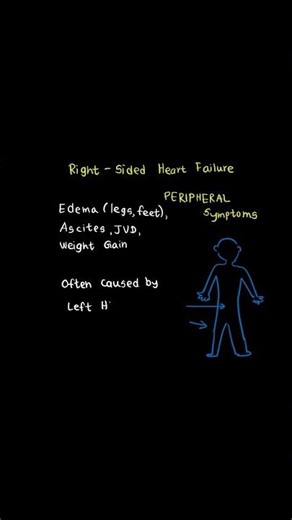 Right-Sided Heart Failure
PERIPHERAL
Symptoms
Edema (legs, feet),
Ascites, JVD,
Weight Gain
Often caused by
Left H